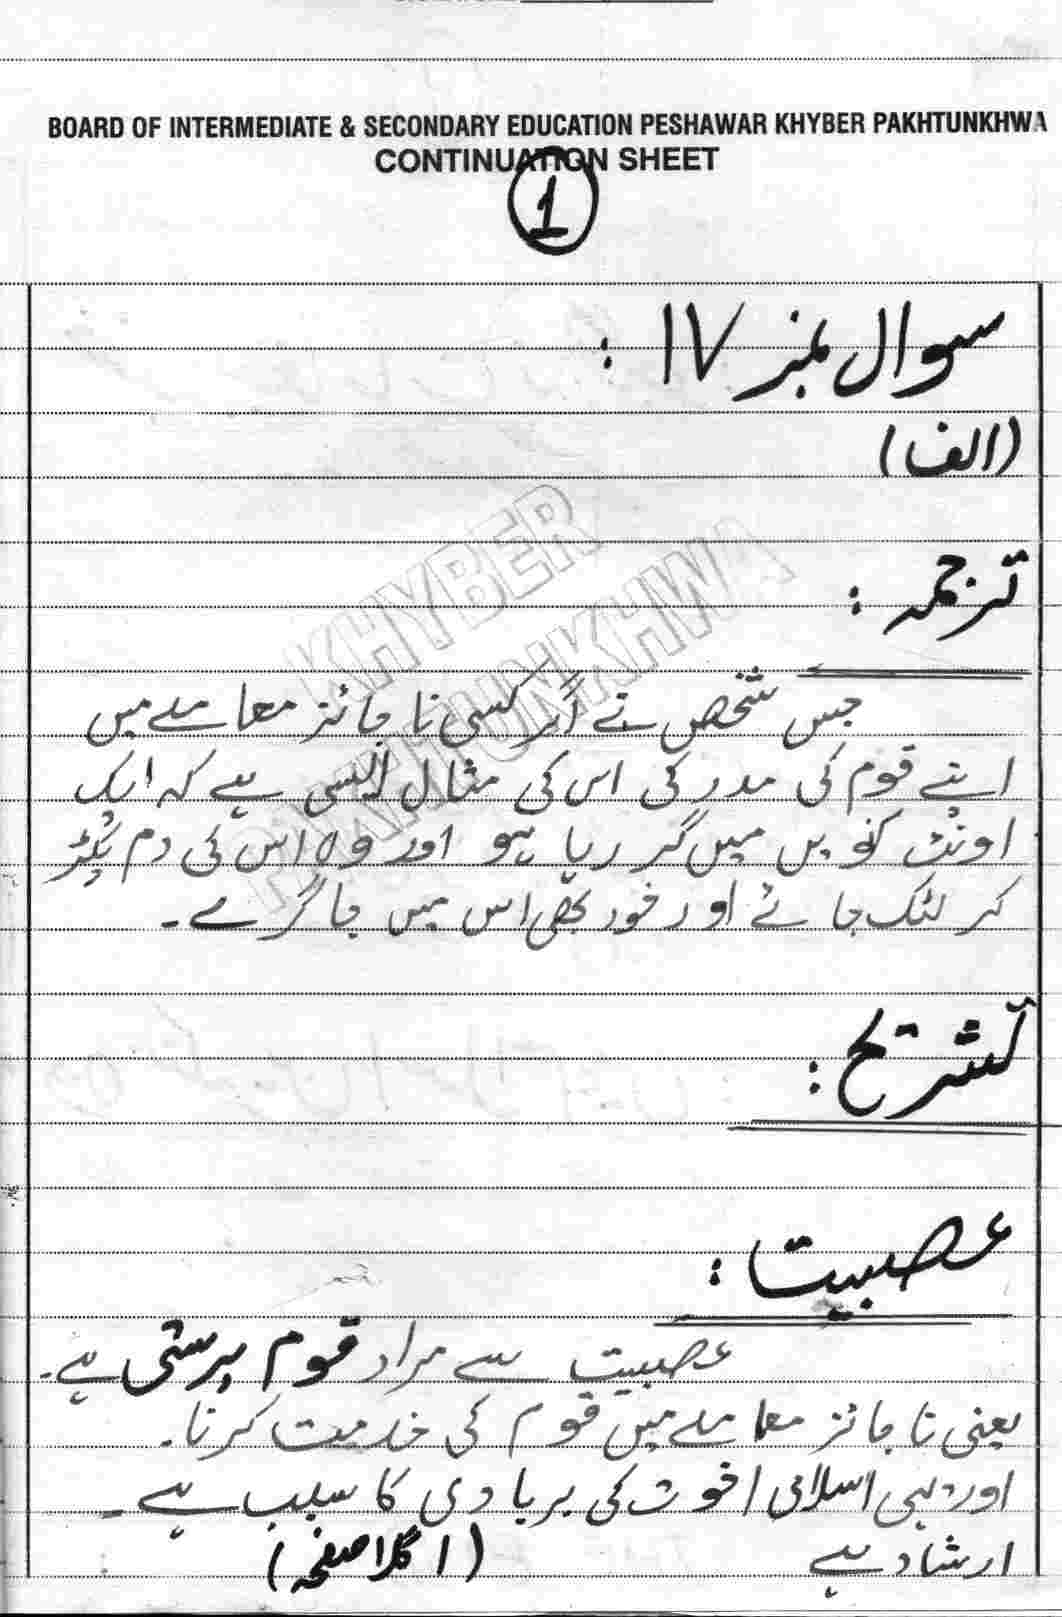 BOARD OF INTERMEDIATE & SECONDARY EDUCATION PESHAWAR KHYBER PAKHTUNKHWA
CONTINUATION SHEET
1
سوال نمبر ۱۷ :
(الف)
ترجمہ :
KHYBER
PAKHTUNKHWA
جس شخص نے اگر کسی ناجائز معاملے میں
اپنے قوم کی مدد کی اس کی مثال ایسی ہے کہ ایک
اونٹ کنویں میں گر رہا ہو اور وہ اس کی دم پکڑ
کر لٹک جائے اور خود بھی اس میں جا گرے۔
تشریح :
عصبیت :
عصبیت سے مراد قوم پرستی ہے۔
یعنی ناجائز معاملے میں قوم کی خدمت کرنا۔
اور یہی اسلامی اخوت کی بربادی کا سبب ہے۔
ارشاد ہے (اگلا صفحہ)